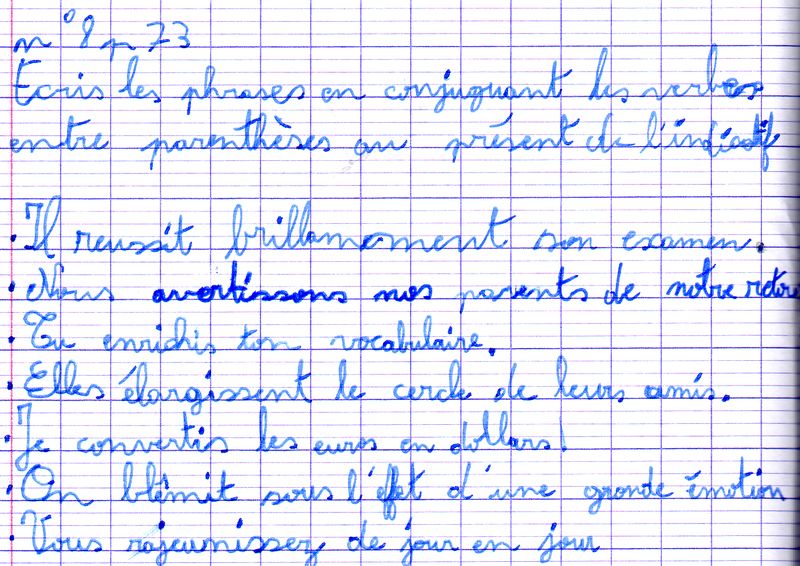 n° 8 p 73
Ecris les phrases en conjuguant les verbes
entre parenthèses au présent de l'indicatif
• Il reussit brillamement son examen.
• Nous avertissons nos parents de notre retou
• Tu enrichis ton vocabulaire.
• Elles élargissent le cercle de leurs amis.
• Je convertis les euros en dollars!
• On blêmit sous l'effet d'une grande émotion
• Vous rajeunissez de jour en jour